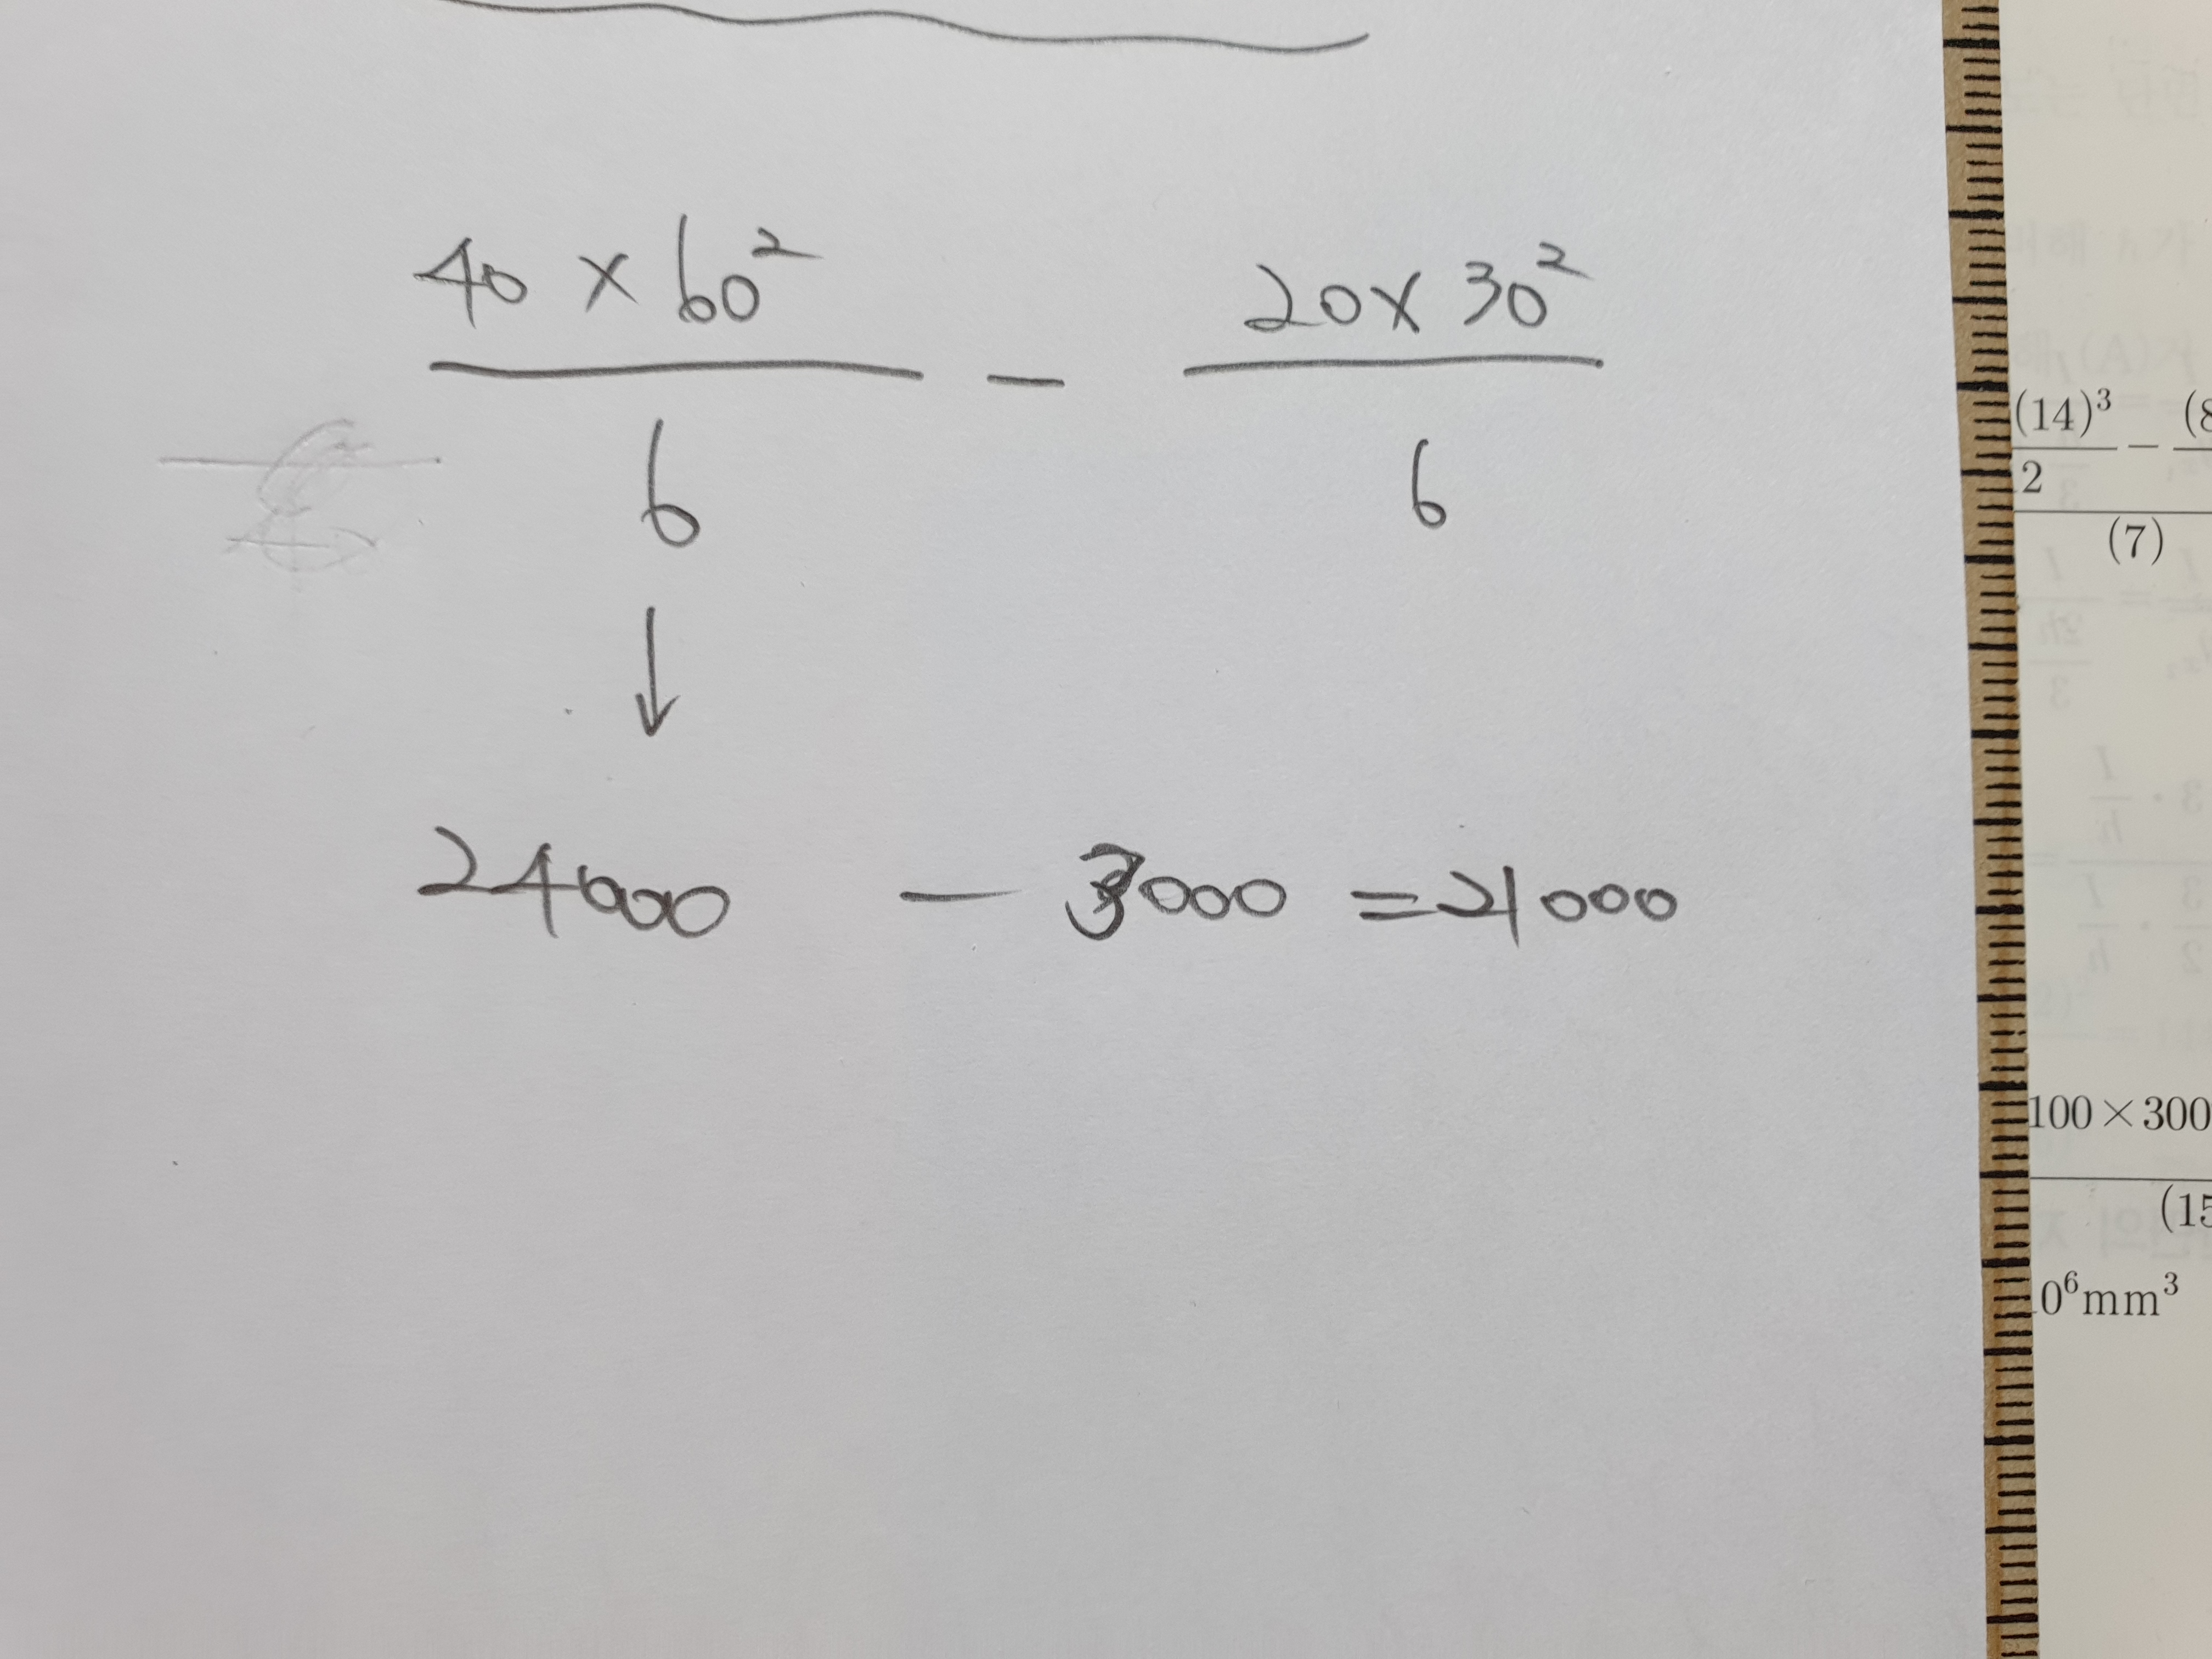 40 × 60² / 6 − 20 × 30² / 6
↓
24000 − 3000 = 21000
(14)³ / 2 − (8
(7)
100×300
(15
0⁶mm³